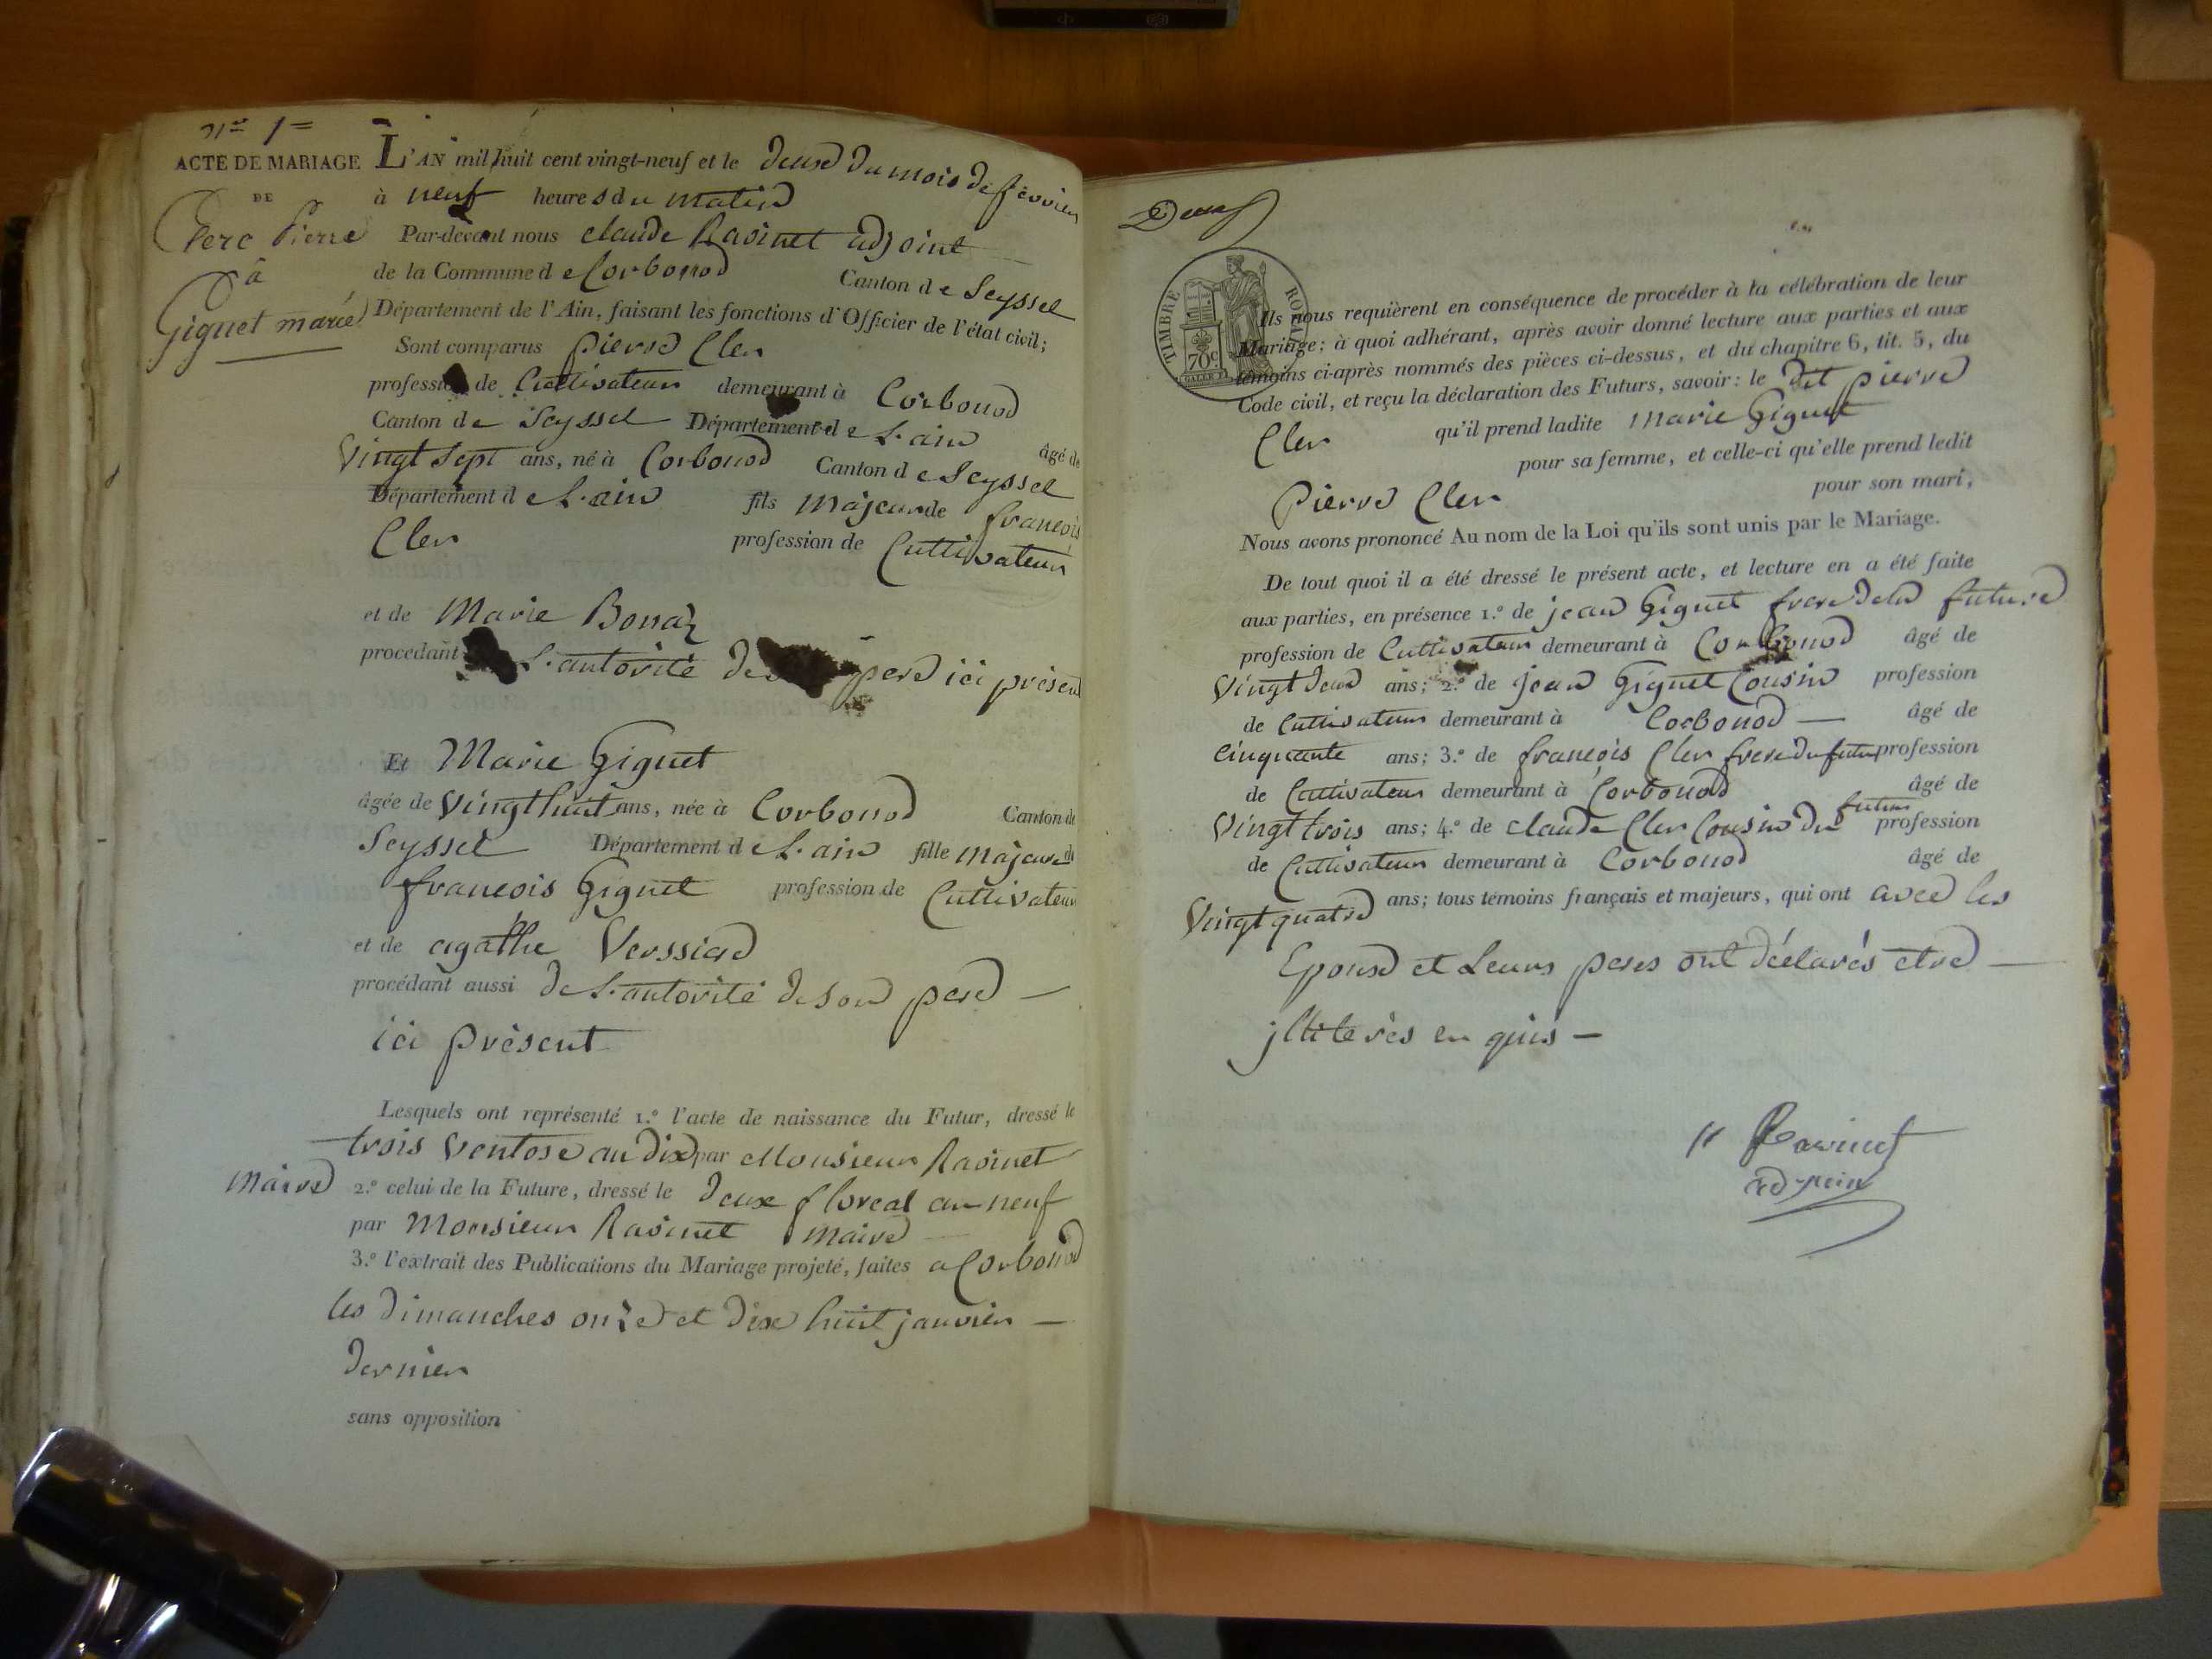 N.o 1=
ACTE DE MARIAGE
DE
Clerc Pierre
à
Giguet marie
L'AN mil huit cent vingt-neuf et le deux du mois de fevrier
à neuf heures du matin
Par-devant nous claude Ravinet adjoint
de la Commune de Corbonod Canton de Seyssel
Département de l'Ain, faisant les fonctions d'Officier de l'état civil;
Sont comparus pierre Cler
profession de Cultivateur demeurant à Corbonod
Canton de Seyssel Département de L'ain âgé de
Vingt Sept ans, né à Corbonod Canton de Seyssel
Département de L'ain fils Majeur de francois
Cler profession de Cultivateur
et de Marie Bonaz
procédant L'autorité de pere ici présent
Et Marie Giguet
âgée de Vingthuit ans, née à Corbonod Canton de
Seyssel Département de L'ain fille majeure de
francois Giguet profession de Cultivateur
et de agathe
procédant aussi de L'autorité de son pere —
ici présent
Lesquels ont représenté 1.o l'acte de naissance du Futur, dressé le
trois Ventose an dix par Monsieur Ravinet
Maire 2.o celui de la Future, dressé le deux floreal an neuf
par Monsieur Ravinet Maire
3.o l'extrait des Publications du Mariage projeté, faites a Corbonod
les dimanches onze et dix huit janvier —
dernier
sans opposition
Deux
TIMBRE ROYAL
70c.
Ils nous requièrent en conséquence de procéder à la célébration de leur
Mariage; à quoi adhérant, après avoir donné lecture aux parties et aux
témoins ci-après nommés des pièces ci-dessus, et du chapitre 6, tit. 5, du
Code civil, et reçu la déclaration des Futurs, savoir: le dit pierre
Cler qu'il prend ladite Marie Giguet
pour sa femme, et celle-ci qu'elle prend ledit
Pierre Cler pour son mari,
Nous avons prononcé Au nom de la Loi qu'ils sont unis par le Mariage.
De tout quoi il a été dressé le présent acte, et lecture en a été faite
aux parties, en présence 1.o de jean Giguet frere de la future
profession de Cultivateur demeurant à Corbonod âgé de
Vingt deux ans; 2.o de jean Giguet Cousin profession
de Cultivateur demeurant à Corbonod — âgé de
Cinquante ans; 3.o de francois Cler frere du futur profession
de Cultivateur demeurant à Corbonod âgé de
Vingt trois ans; 4.o de claude Cler Cousin du futur profession
de Cultivateur demeurant à Corbonod âgé de
Vingt quatre ans; tous témoins français et majeurs, qui ont avec les
Epoux et Leurs peres ont déclarés etre —
jlliterés en quis —
Ravinet